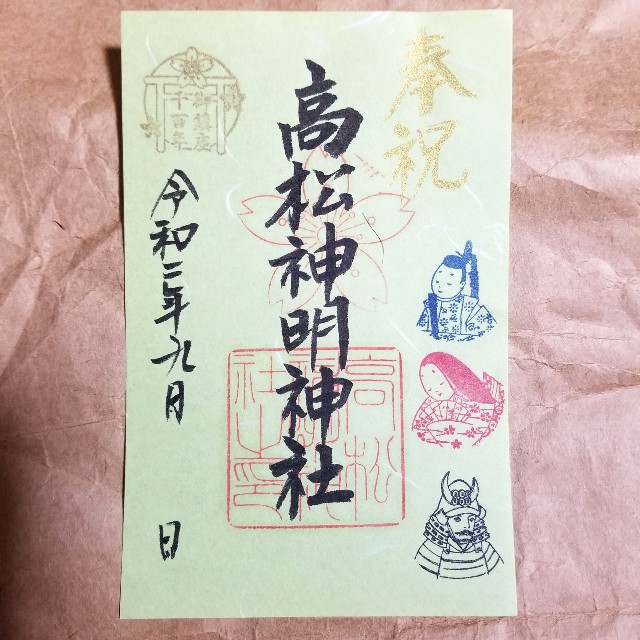 奉祝
高松神明神社
高松神明神社之印
御鎮座
千百年
令和二年九月
日